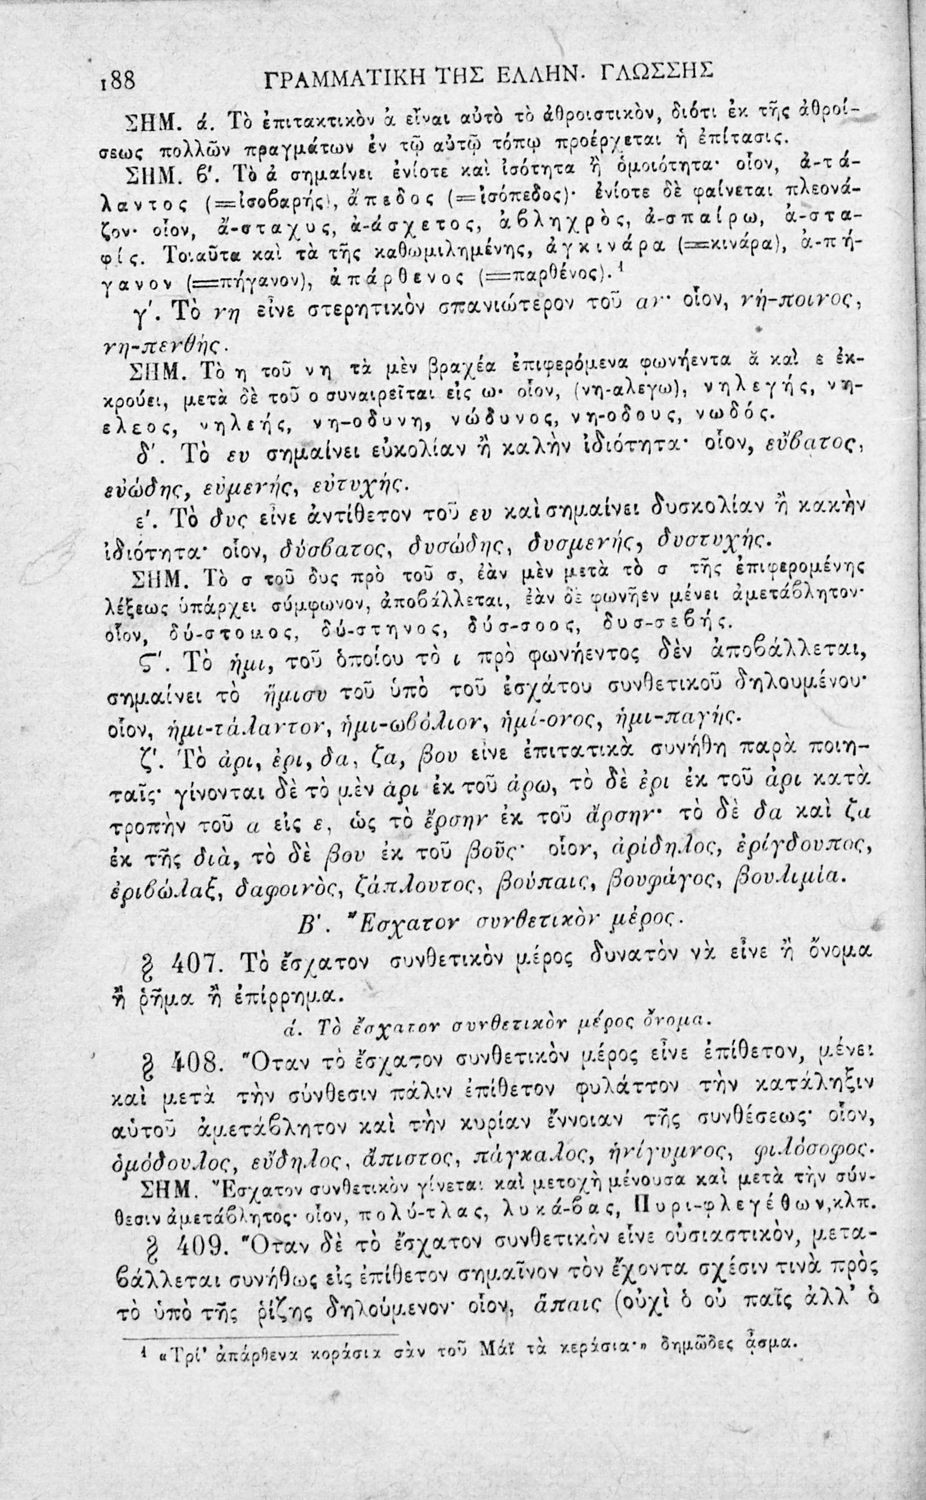 188 ΓΡΑΜΜΑΤΙΚΗ ΤΗΣ ΕΛΛΗΝ. ΓΛΩΣΣΗΣ
ΣΗΜ. ά. Τὸ ἐπιτακτικὸν ἀ εἶναι αὐτὸ τὸ ἀθροιστικὸν, διότι ἐκ τῆς ἀθροί-
σεως πολλῶν πραγμάτων ἐν τῷ αὐτῷ τόπῳ προέρχεται ἡ ἐπίτασις.
ΣΗΜ. ϐ′. Τὸ ἀ σημαίνει ἐνίοτε καὶ ἰσότητα ἢ ὁμοιότητα· οἷον, ἀ-τά-
λαντος (=ἰσοϐαρής), ἄπεδος (=ἰσόπεδος)· ἐνίοτε δὲ φαίνεται πλεονά-
ζον· οἷον, ἄ-σταχυς, ἀ-άσχετος, ἀϐληχρὸς, ἀ-σπαίρω, ἀ-στα-
φίς. Τοιαῦτα καὶ τὰ τῆς καθωμιλημένης, ἀγκινάρα (=κινάρα), ἀ-πή-
γανον (=πήγανον), ἀπάρθενος (=παρθένος).¹
γ′. Τὸ νη εἶνε στερητικὸν σπανιώτερον τοῦ αν· οἷον, νή-ποινος,
νη-πενθής.
ΣΗΜ. Τὸ η τοῦ νη τὰ μὲν βραχέα ἐπιφερόμενα φωνήεντα ᾰ καὶ ε ἐκ-
κρούει, μετὰ δὲ τοῦ ο συναιρεῖται εἰς ω· οἷον, (νη-αλεγω), νηλεγής, νη-
ελεος, νηλεής, νη-οδυνη, νώδυνος, νη-οδους, νωδός.
δ′. Τὸ ευ σημαίνει εὐκολίαν ἢ καλὴν ἰδιότητα· οἷον, εὔϐατος,
εὐώδης, εὐμενής, εὐτυχής.
ε′. Τὸ δυς εἶνε ἀντίθετον τοῦ ευ καὶ σημαίνει δυσκολίαν ἢ κακὴν
ἰδιότητα· οἷον, δύσϐατος, δυσώδης, δυσμενής, δυστυχής.
ΣΗΜ. Τὸ σ τοῦ δυς πρὸ τοῦ σ, ἐὰν μὲν μετὰ τὸ σ τῆς ἐπιφερομένης
λέξεως ὑπάρχει σύμφωνον, ἀποϐάλλεται, ἐὰν δὲ φωνῆεν μένει ἀμετάϐλητον·
οἷον, δύ-στομος, δύ-στηνος, δύσ-σοος, δυσ-σεϐής.
Ϛ′. Τὸ ἡμι, τοῦ ὁποίου τὸ ι πρὸ φωνήεντος δὲν ἀποϐάλλεται,
σημαίνει τὸ ἥμισυ τοῦ ὑπὸ τοῦ ἐσχάτου συνθετικοῦ δηλουμένου·
οἷον, ἡμι-τάλαντον, ἡμι-ωϐόλιον, ἡμί-ονος, ἡμι-παγής.
ζ′. Τὸ ἀρι, ἐρι, δα, ζα, βου εἶνε ἐπιτατικὰ συνήθη παρὰ ποιη-
ταῖς· γίνονται δὲ τὸ μὲν ἀρι ἐκ τοῦ ἄρω, τὸ δὲ ἐρι ἐκ τοῦ ἀρι κατὰ
τροπὴν τοῦ α εἰς ε, ὡς τὸ ἔρσην ἐκ τοῦ ἄρσην· τὸ δὲ δα καὶ ζα
ἐκ τῆς διὰ, τὸ δὲ βου ἐκ τοῦ βοῦς· οἷον, ἀρίδηλος, ἐρίγδουπος,
ἐριϐῶλαξ, δαφοινὸς, ζάπλουτος, βούπαις, βουφάγος, βουλιμία.
Β′. Ἔσχατον συνθετικὸν μέρος.
§ 407. Τὸ ἔσχατον συνθετικὸν μέρος δυνατὸν νὰ εἶνε ἢ ὄνομα
ἢ ῥῆμα ἢ ἐπίρρημα.
ά. Τὸ ἔσχατον συνθετικὸν μέρος ὄνομα.
§ 408. Ὅταν τὸ ἔσχατον συνθετικὸν μέρος εἶνε ἐπίθετον, μένει
καὶ μετὰ τὴν σύνθεσιν πάλιν ἐπίθετον φυλάττον τὴν κατάληξιν
αὐτοῦ ἀμετάϐλητον καὶ τὴν κυρίαν ἔννοιαν τῆς συνθέσεως· οἷον,
ὁμόδουλος, εὔδηλος, ἄπιστος, πάγκαλος, ἡνίγυμνος, φιλόσοφος.
ΣΗΜ. Ἔσχατον συνθετικὸν γίνεται καὶ μετοχὴ μένουσα καὶ μετὰ τὴν σύν-
θεσιν ἀμετάϐλητος· οἷον, πολύ-τλας, λυκά-ϐας, Πυρι-φλεγέθων, κλπ.
§ 409. Ὅταν δὲ τὸ ἔσχατον συνθετικὸν εἶνε οὐσιαστικὸν, μετα-
ϐάλλεται συνήθως εἰς ἐπίθετον σημαῖνον τὸν ἔχοντα σχέσιν τινὰ πρὸς
τὸ ὑπὸ τῆς ῥίζης δηλούμενον· οἷον, ἄπαις (οὐχὶ ὁ οὐ παῖς ἀλλ’ ὁ
¹ «Τρί’ ἀπάρθενα κοράσια σὰν τοῦ Μάϊ τὰ κεράσια·» δημῶδες ᾆσμα.